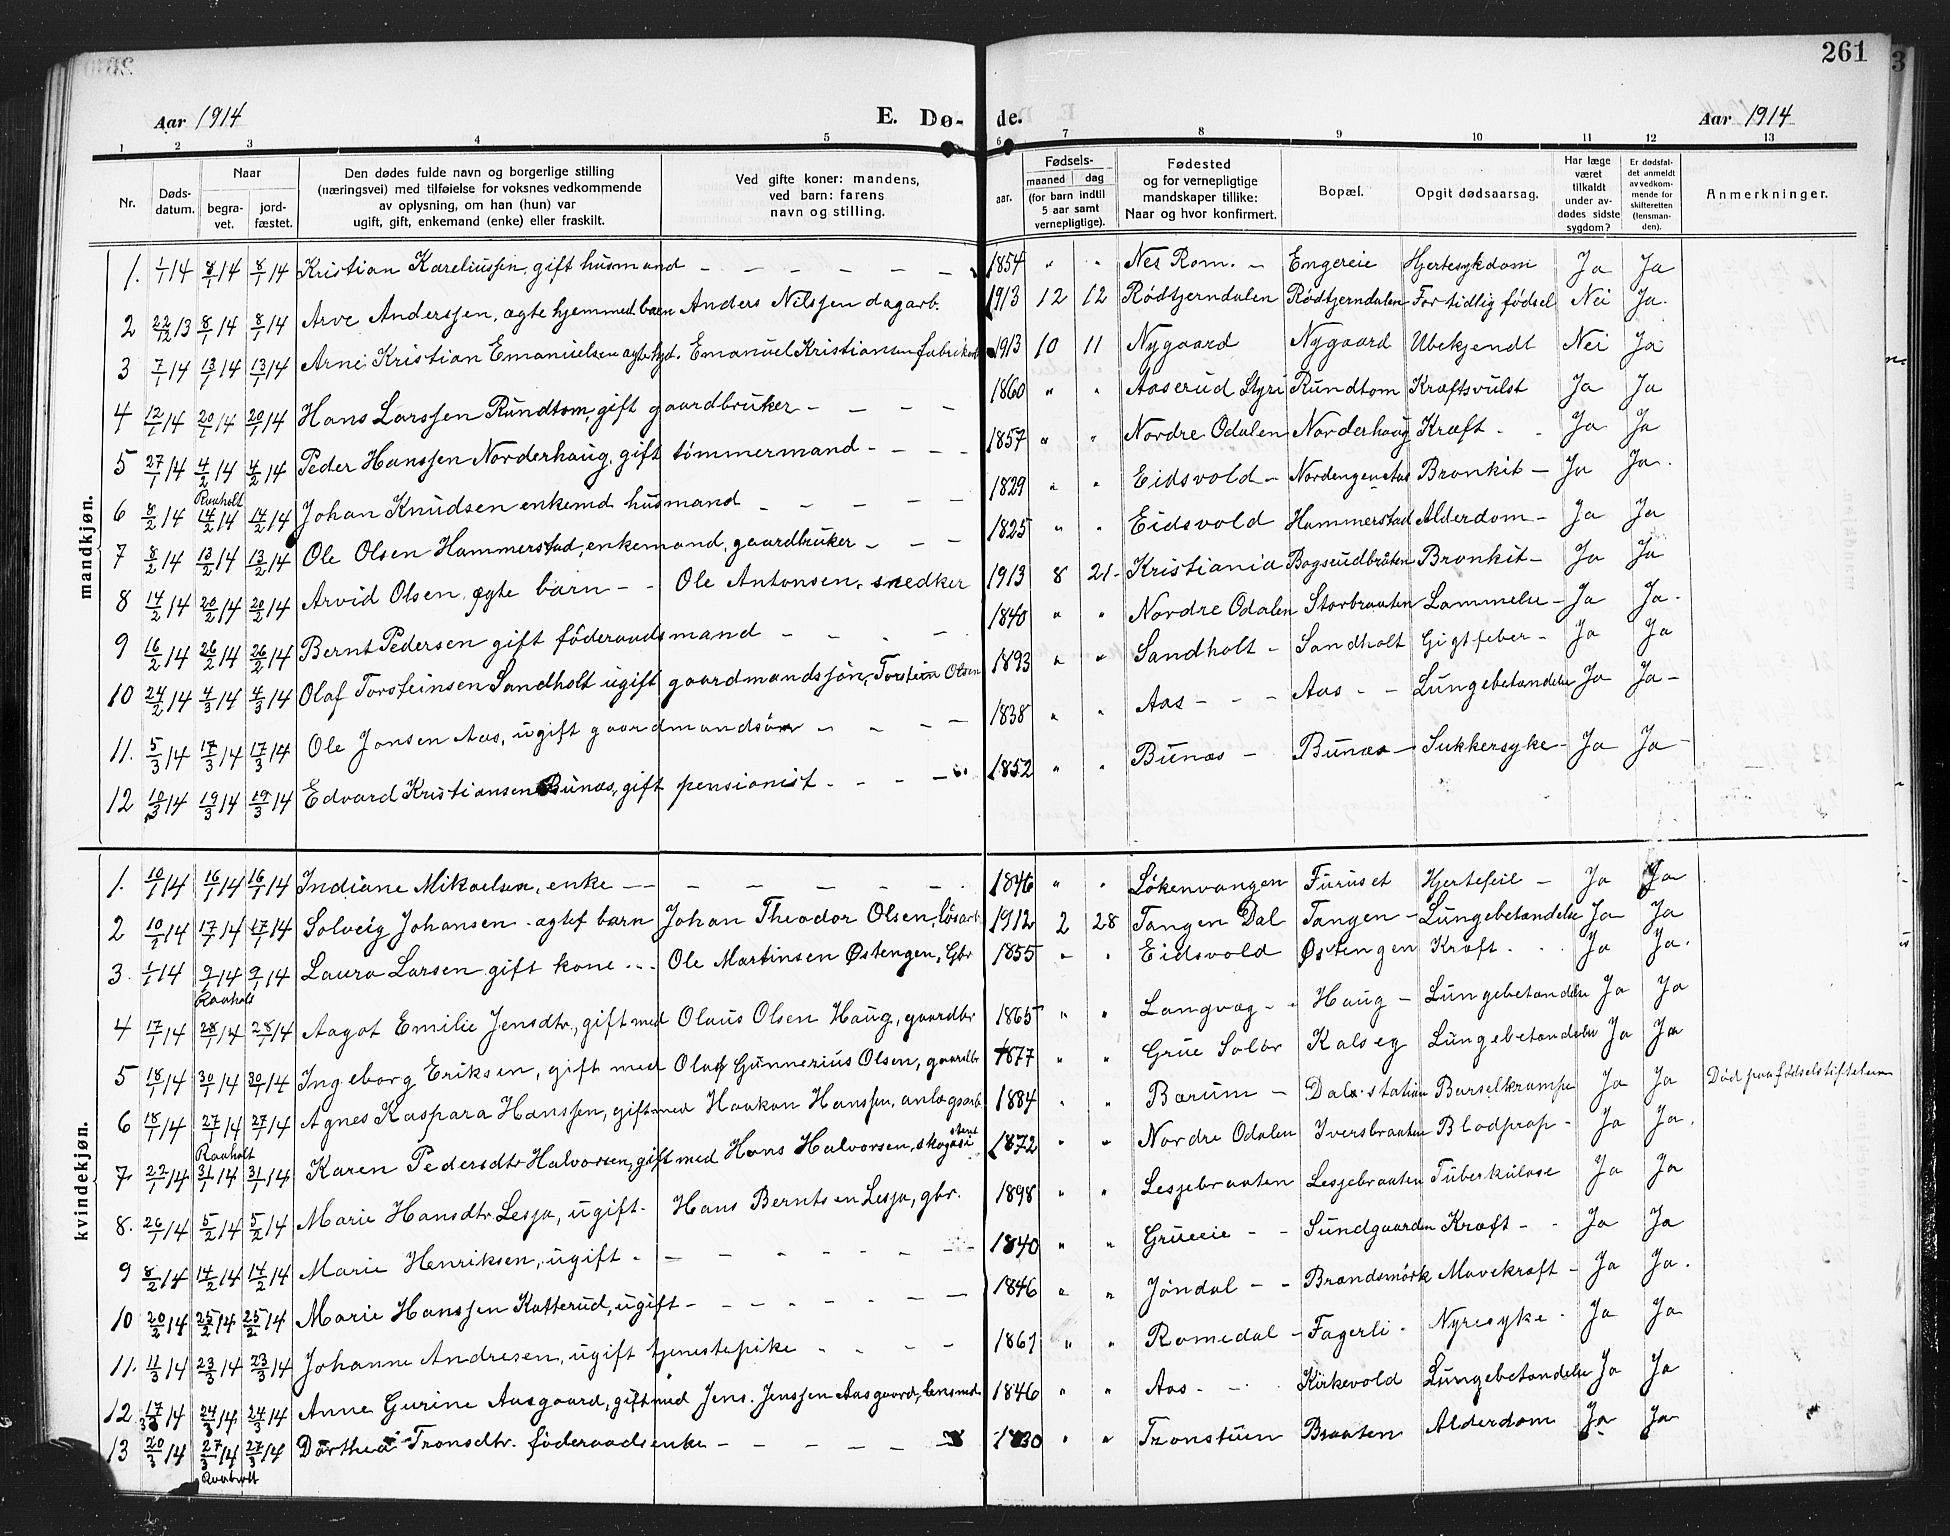 261
Aar 1914 E. Dø- de. Aar 1914
1 2 3 4 5 6 7 8 9 10 11 12 13
Nr.
Døds-datum.
Naar
begra-vet.
jord-fæstet.
Den dødes fulde navn og borgerlige stilling
(næringsvei) med tilføielse for voksnes vedkommende
av oplysning, om han (hun) var
ugift, gift, enkemand (enke) eller fraskilt.
Ved gifte koner: mandens,
ved barn: farens
navn og stilling.
aar.
Fødsels-
maaned dag
(for barn indtil
5 aar samt
vernepligtige).
Fødested
og for vernepligtige
mandskaper tillike:
Naar og hvor konfirmert.
Bopæl.
Opgit dødsaarsag.
Har læge
været
tilkaldt
under av-
dødes sidste
sygdom?
Er dødsfal-
det anmeldt
av vedkom-
mende for
skifteretten
(lensman-
den).
Anmerkninger.
mandkjøn.
1. 1/1 14 8/1 14 8/1 14 Kristian Kareliussen, gift husmand – – – – – 1854 " " Nes Rom. – Engereie Hjertesykdom Ja Ja
2 22/12 13 8/1 14 8/1 14 Arve Anderssen, ægte hjemmed. barn Anders Nilssen dagarb. 1913 12 12 Rødtjerndalen Rødtjerndalen For tidlig fødsel Nei Ja.
3 7/1 14 13/1 14 13/1 14 Arne Kristian Emanuelsen ægte hjd. Emanuel Kristiansen fabrikarb 1913 10 11 Nygaard Nygaard Ubekjendt Nei Ja
4 12/1 14 20/1 14 20/1 14 Hans Larssen Rundtom, gift gaardbruker – – – – 1860 " " Aaserud Styri Rundtom Kræftsvulst Ja Ja
5 27/1 14 4/2 14 4/2 14 Peder Hanssen Norderhaug, gift tømmermand – – – – 1857 " " Nordre Odalen Norderhaug Kræft – Ja Ja
Raaholt
6 8/2 14 14/2 14 14/2 14 Johan Knudsen enkemd husmand – – – – 1829 " " Eidsvold – Nordengen Aas Bronkit – Ja Ja.
7 8/2 14 13/2 14 13/2 14 Ole Olsen Hammerstad, enkemand, gaardbruker – – – 1825 " " Eidsvold Hammerstad Alderdom – Ja Ja
8 14/2 14 20/2 14 20/2 14 Arvid Olsen, ægte barn – – Ole Antonsen, snedker 1913 8 21 Kristiania Bogsrudbråten Bronkit – Ja Ja
9 16/2 14 26/2 14 26/2 14 Bernt Pedersen gift føderaadsmand – – – – 1840 " " Nordre Odalen Storbraaten Lammelse – Ja Ja.
10 24/2 14 4/3 14 4/3 14 Olaf Torsteinsen Sandholt ugift gaardmandssøn, Torstein Olsen 1893 " " Sandholt – Sandholt Gigtfeber – Ja Ja
11. 5/3 14 17/3 14 17/3 14 Ole Jonsen Aas, ugift gaardmandsøn – – – – 1838 " " Aas – – – Aas – – Lungebetændelse Ja Ja –
12 10/3 14 19/3 14 19/3 14 Edvard Kristiansen Bunæs, gift pensionist – – – – 1852 " " Bunæs – Bunæs – Sukkersyke – Ja Ja –
kvindekjøn.
1. 10/1 14 16/1 14 16/1 14 Indiane Mikaelsen, enke – – – – – – – 1846 " " Løkenvangen Furuset Hjertefeil – Ja Ja
2 10/1 14 17/1 14 17/1 14 Solveig Johansen – ægtef barn Johan Theodor Olsen, løsarb 1912 2 28 Tangen Dal Tangen – Lungebetændelse Ja Ja
3. 1/1 14 9/1 14 9/1 14 Laura Larsen gift kone – – Ole Martinsen Østengen, Gbr 1855 " " Eidsvold Østengen Kræft – Ja Ja.
Raaholt
4 17/1 14 28/1 14 28/1 14 Aagot Emilie Jensdtr., gift med Olaus Olsen Haug, gaardbr 1865 " " Langvag – Haug – Lungebetændelse Ja Ja
5 18/1 14 30/1 14 30/1 14 Ingeborg Eriksen, gift med Olaf Gunnerius Olsen, gaardbr 1877 " " Grue Solør Kalseg Lungebetændelse Ja Ja
6 18/1 14 27/1 14 27/1 14 Agnes Kaspara Hanssen, gift med Haakon Hanssen, anlægsarb. 1884 " " Bærum – Dal station Barselkrampe Ja Ja Død paa fødselstiftelsen
Raaholt
7 22/1 14 31/1 14 31/1 14 Karen Pedersdtr Halvorsen, gift med Hans Halvorsen, skogasistent 1872 " " Nordre Odalen Iversbraaten Blodprop – Ja Ja.
8. 26/1 14 5/2 14 5/2 14 Marie Hansdtr Lesja, ugift – Hans Berntsen Lesja, gbr. 1898 " " Lesjebraaten Lesjebraaten Tuberkulose Ja Ja
9 8/2 14 14/2 14 14/2 14 Marie Henriksen, ugift – – – – – – – 1840 " " Grueeie – – Sundgaarden Kræft – – Ja Ja
10 20/2 14 25/2 14 25/2 14 Marie Hanssen Katterud, ugift – – – – – – – 1846 " " Jøndal – – Brandsmørk Mavekræft – Ja Ja.
11. 11/3 14 23/3 14 23/3 14 Johanne Andresen, ugift tjenestepike – – – – 1861 " " Romedal – Fagerli – Nyresyke – Ja Ja
12 17/3 14 24/3 14 24/3 14 Anne Gurine Aasgaard, gift med Jens Jenssen Aasgaard, lensmd 1846 " " Aas – – Kirkevold Lungebetændelse Ja Ja
13 20/3 14 27/3 14 27/3 14 Dorthea Tronsdtr. føderaadsenke – – – – – 1830 " " Tronstuen Braaten Alderdom Ja Ja
Raaholt